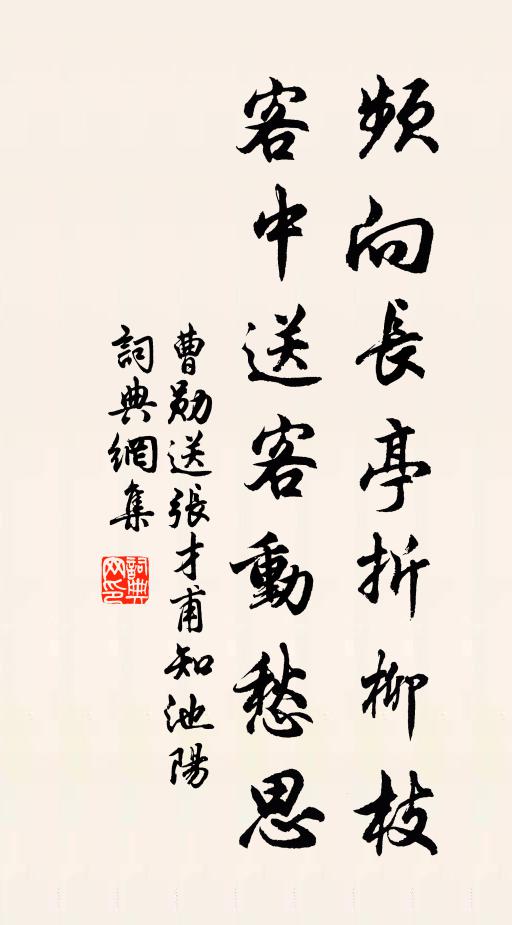 頻向長亭折柳枝
客中送客動愁思
曹勛送張才甫知池陽
詞典網集
詞典網印